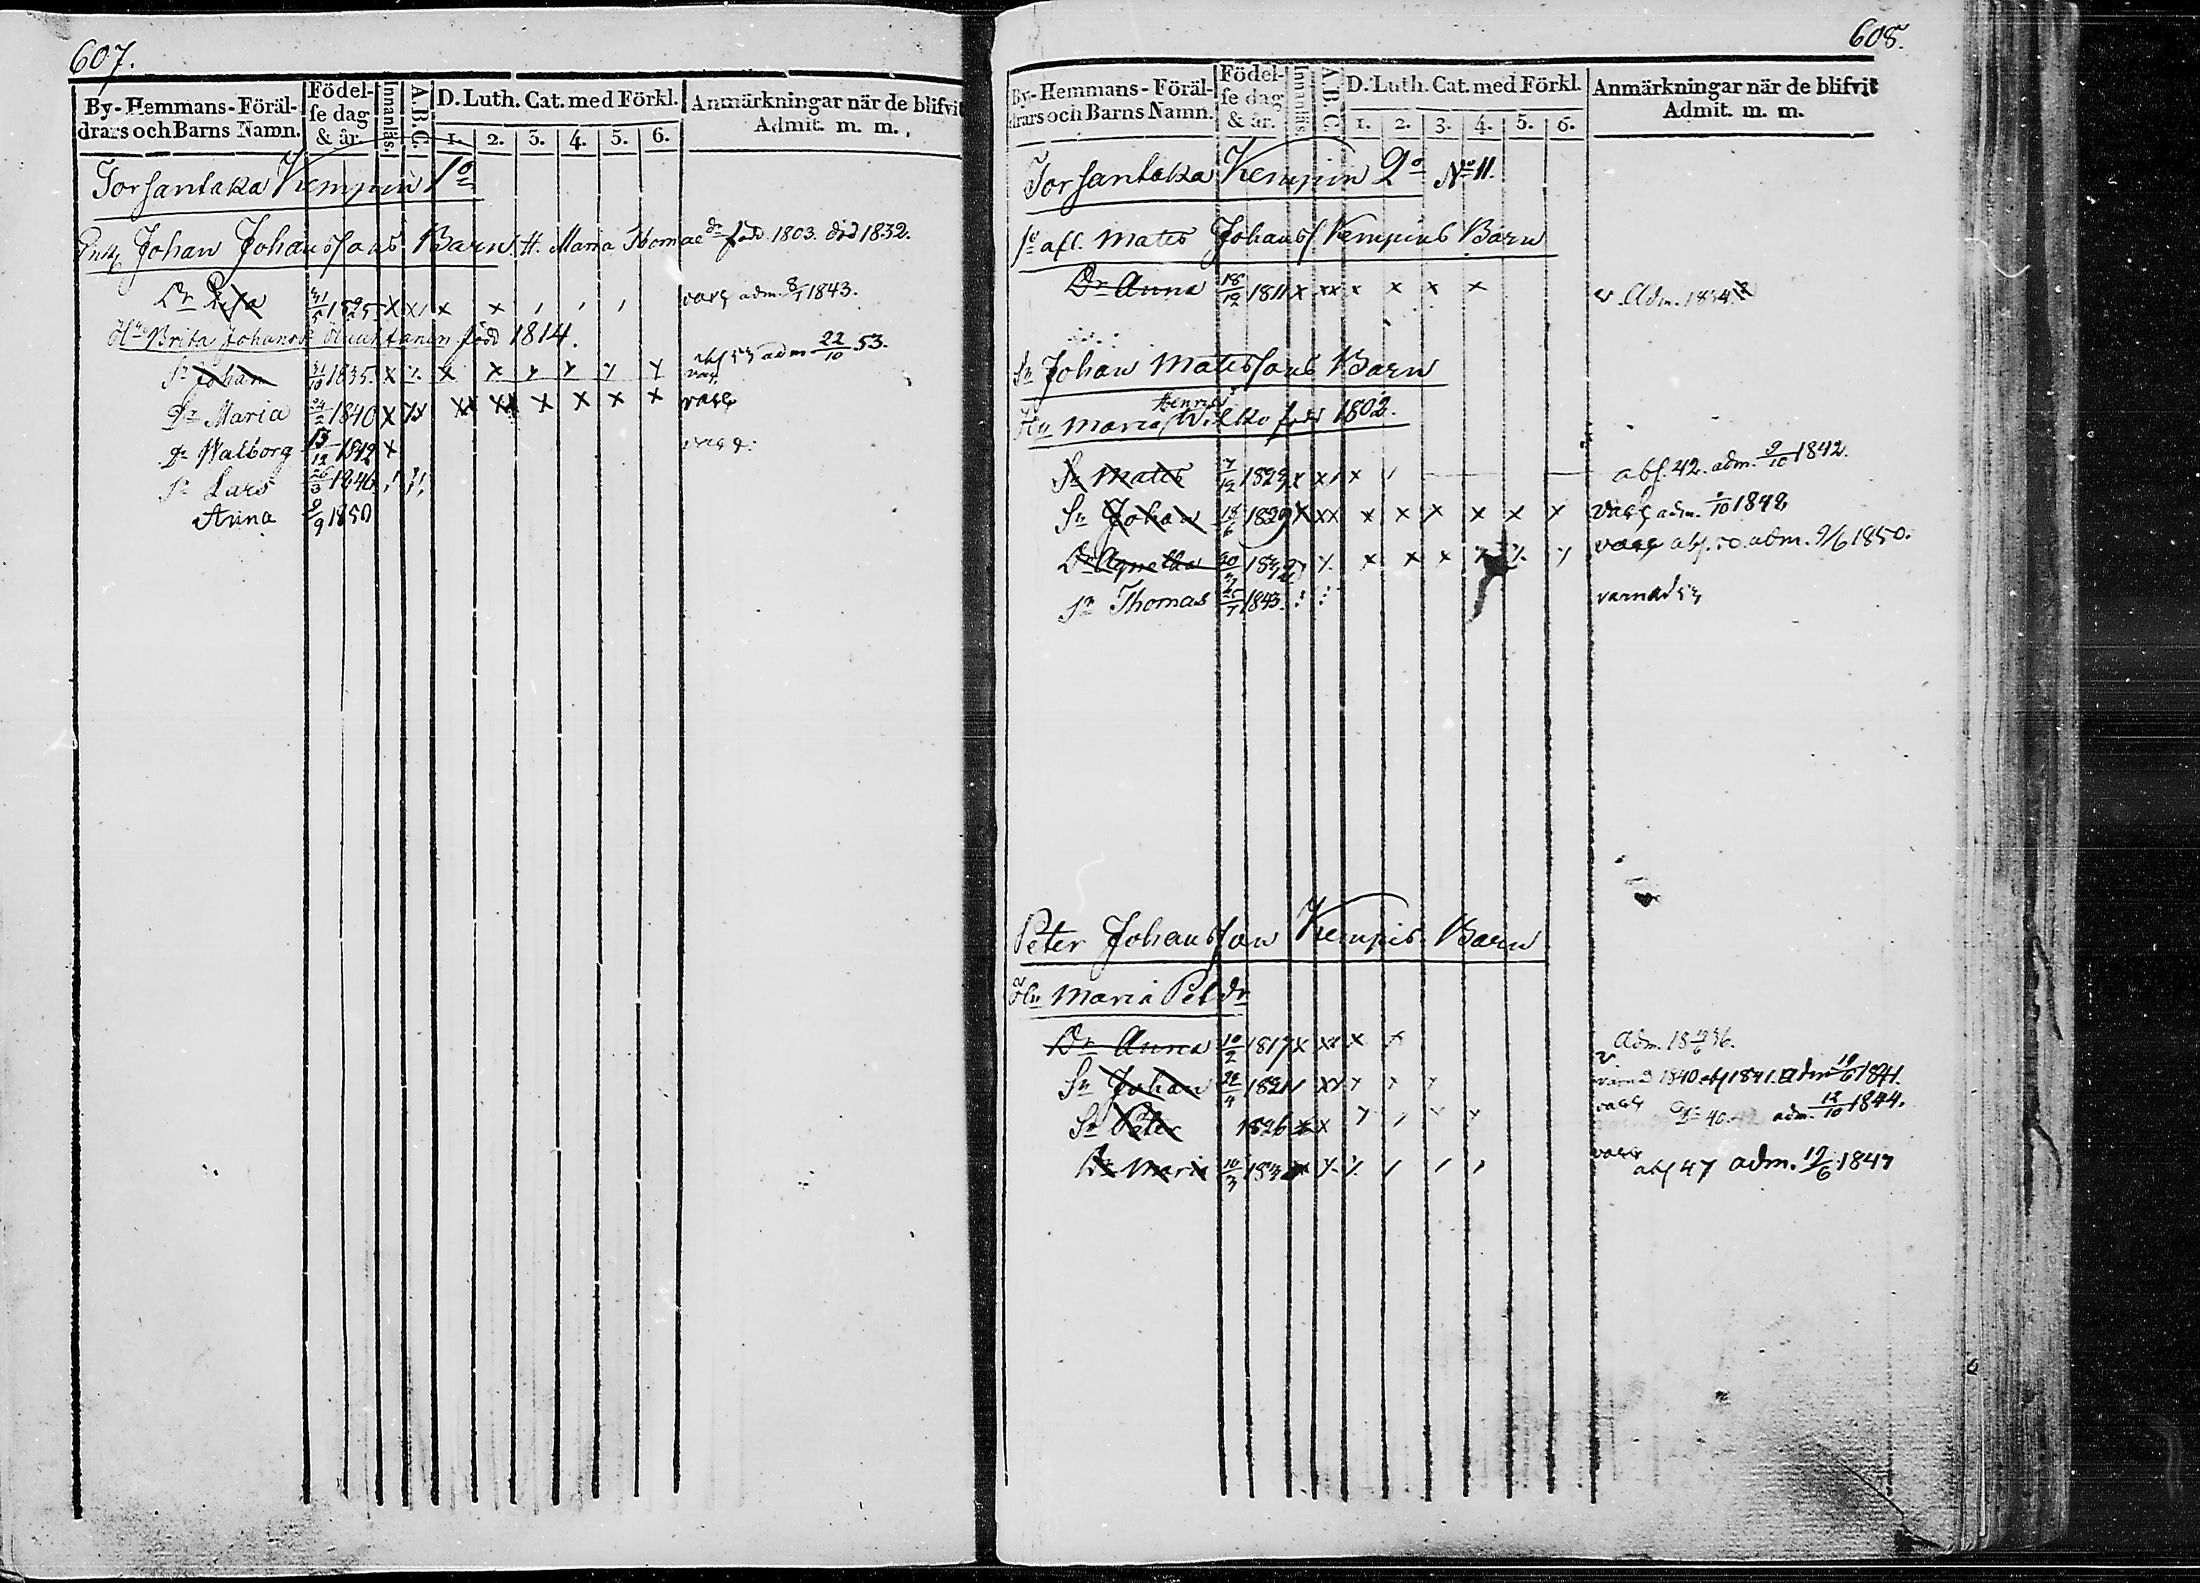 607.
By-Hemmans-Föräl-
drars och Barns Namn.
Födel-
se dag
& år.
Innanläs.
A.B.C.
D. Luth. Cat. med Förkl.
1. 2. 3. 4. 5. 6.
Anmärkningar när de blifvit
Admit. m. m.
Torsantaka Kempin 1º
Johan Johanssons Barn. H. Maria Thomae dr född 1803. död 1832.
Dr 31/5 1825 x x x x adm. 8/7 1843.
Hu Brita Johansdr född 1814.
Sn Johan 31/10 1835. x x x x y y y y abs 53 adm. 22/10 53.
Dr Maria 24/2 1840 x xx xx xx x x x x
Dr Walborg 13/12 1842 x
Sn Lars 26/3 1846
Anna 9/9 1850
608.
By-Hemmans-Föräl-
drars och Barns Namn.
Födel-
se dag
& år.
Innanläs.
A.B.C.
D. Luth. Cat. med Förkl.
1. 2. 3. 4. 5. 6.
Anmärkningar när de blifvit
Admit. m. m.
Torsantaka Kempin 2º Nº 11.
afl. Mats Johanss. Kempins Barn
Dr Anna 18/12 1811 x xx x x x x v. Adm. 1834
Sn Johan Matssons Barn
Hu Maria Henriksdr född 1802.
Sn Mats 7/12 1823 x x x abs. 42. adm. 9/10 1842.
Sn Johan 18/6 1829 x xx x x x x x x adm. 9/10 1842
Dr Agnetha 20/3 x x x abs. 50. adm. 9/6 1850.
Sn Thomas 25/7 1843. varnad 53
Peter Johansson Kempis Barn
Hu Maria Petdr
Dr Anna 10/2 1817 x xx x x Adm. 18 19/6 36.
Sn Johan 22/4 1821 xx x x x 1840 abs 1841. adm 19/6 1841.
Sn Peter 1826 x x adm. 12/10 1844.
Dr Maria 10/3 abs 47 adm. 19/6 1847